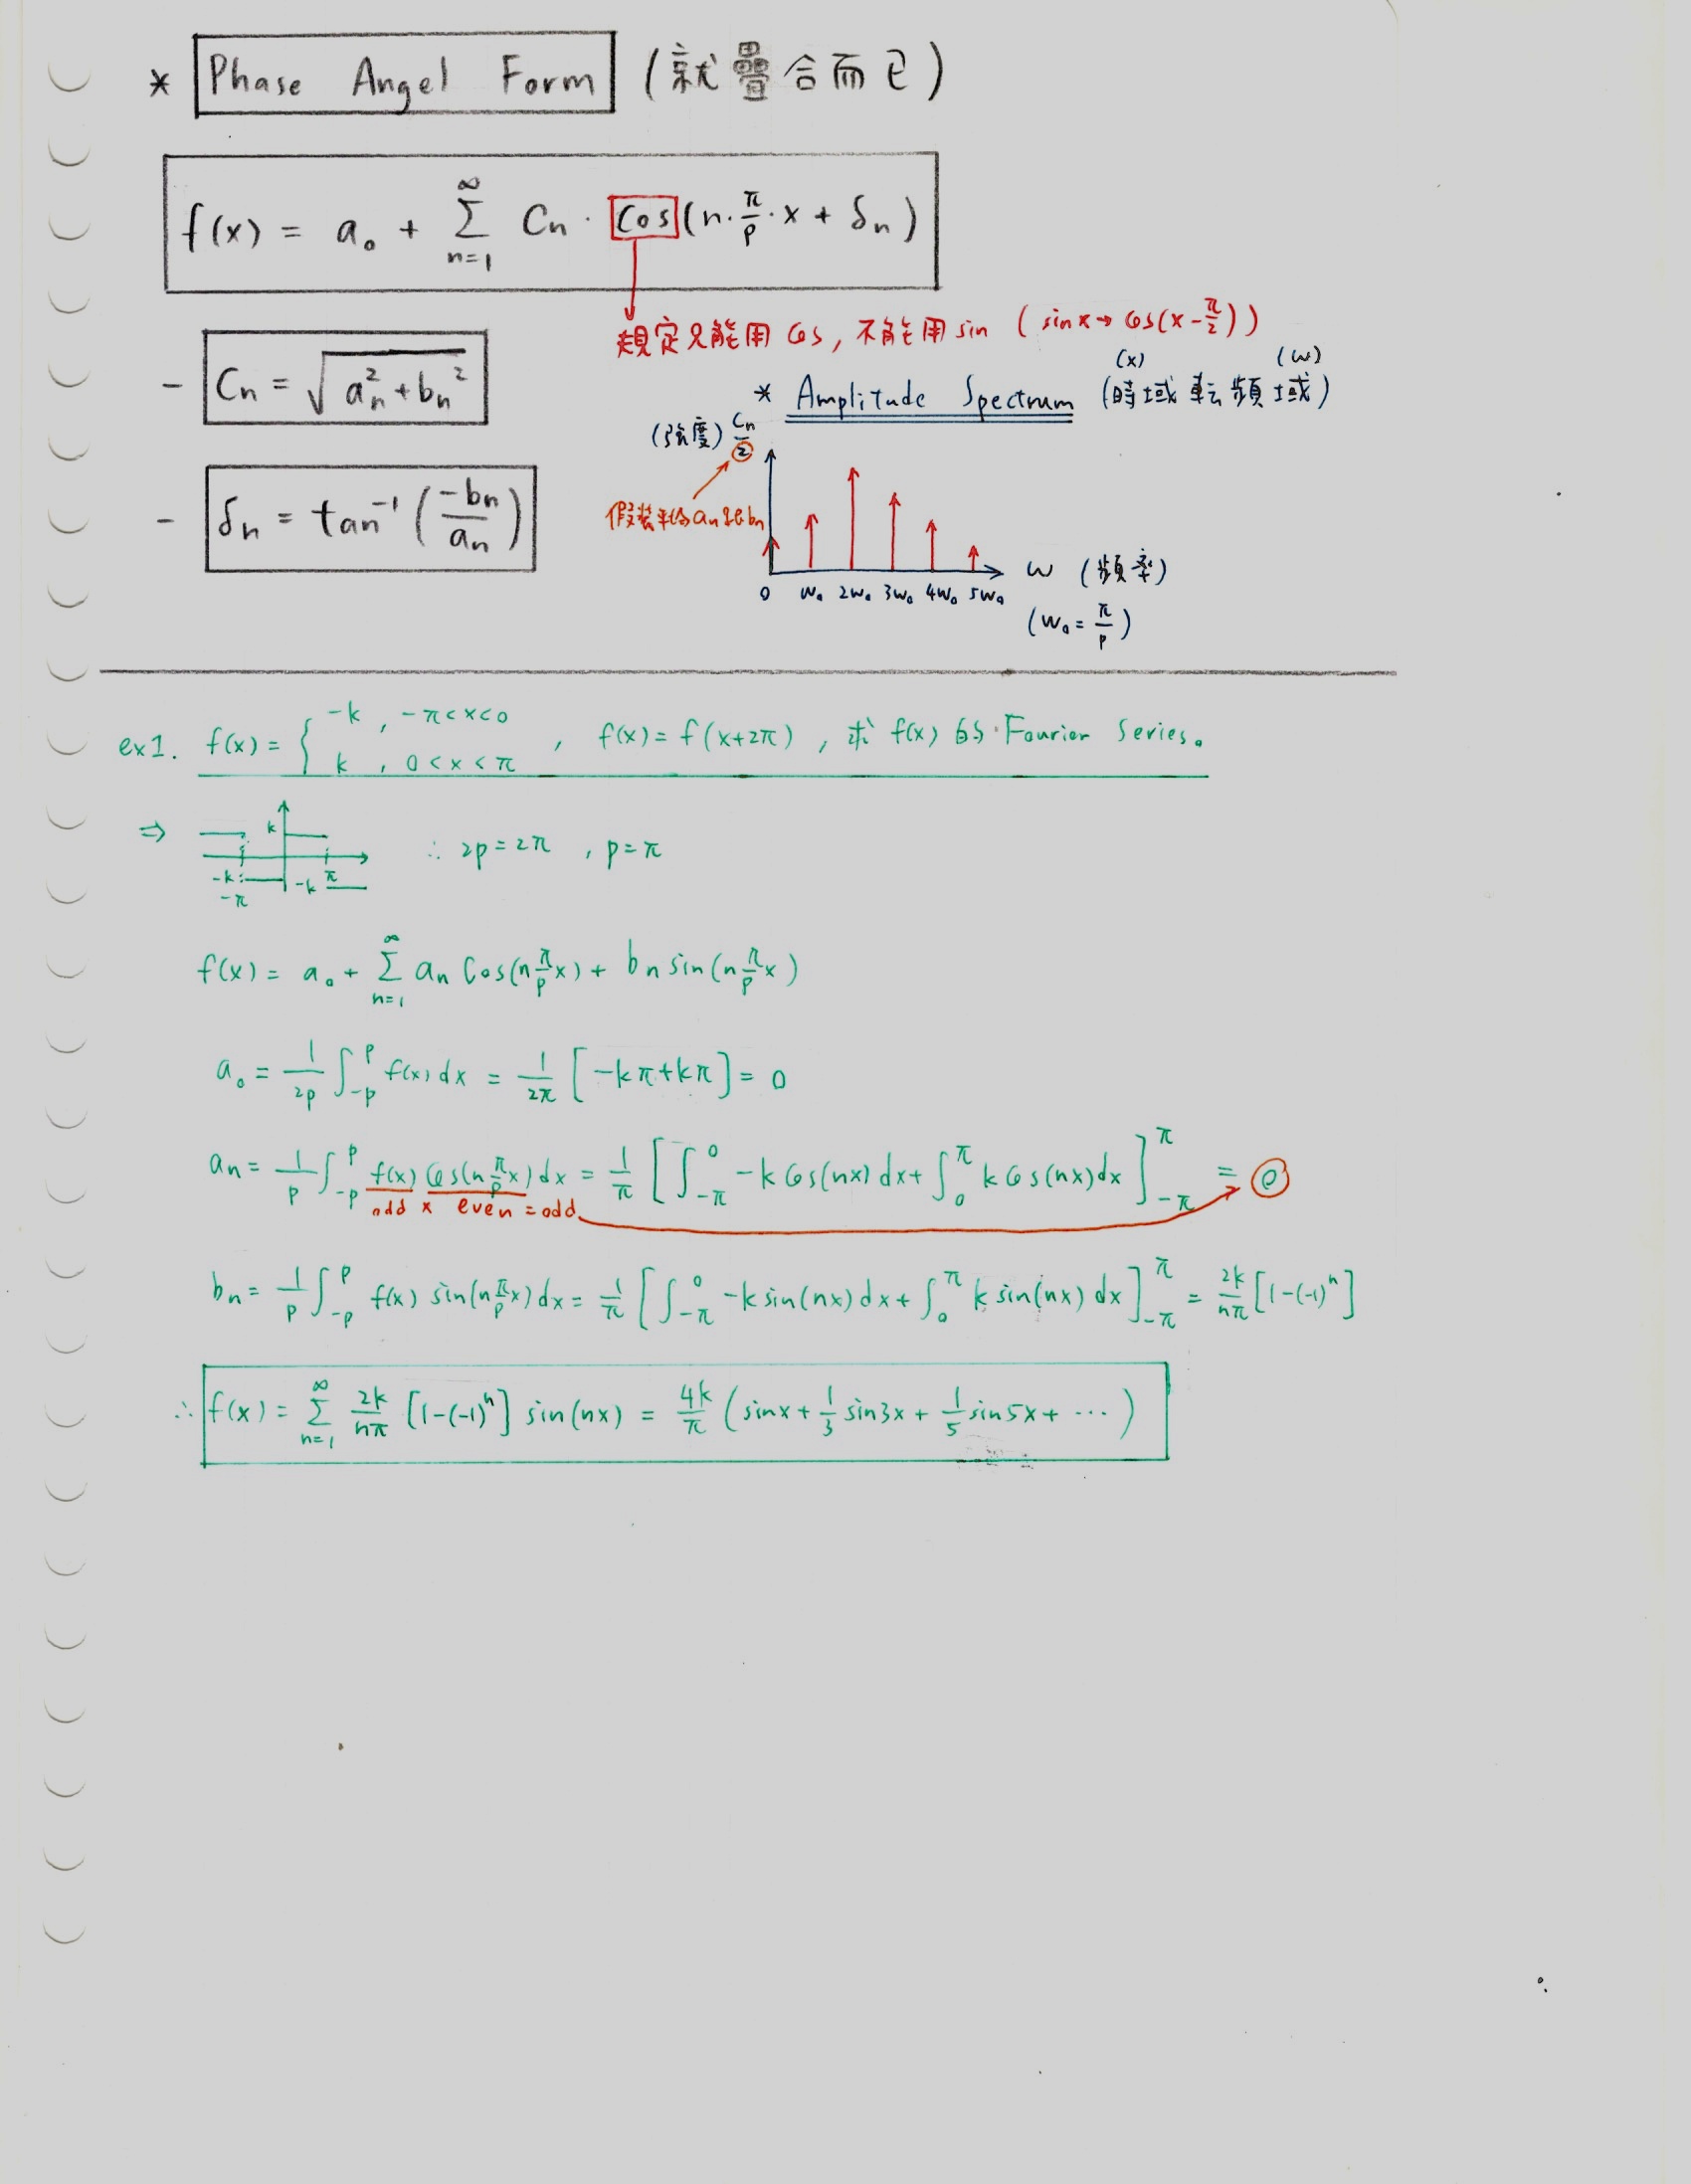 * Phase Angel Form (就疊合而已)
f(x) = a₀ + ∑_{n=1}^{∞} Cₙ · Cos(n·π/p·x + δₙ)
規定只能用 Cos, 不能用 sin (sin x → Cos(x-π/2))
- Cₙ = √(aₙ²+bₙ²)
* Amplitude Spectrum (時域轉頻域)
(x) (w)
(強度) Cₙ/2
- δₙ = tan⁻¹(-bₙ/aₙ)
假裝平均 aₙ 跟 bₙ
w (頻率)
0 w₀ 2w₀ 3w₀ 4w₀ 5w₀
(w₀ = π/p)
ex1. f(x) = { -k , -π<x<0 ; k , 0<x<π , f(x) = f(x+2π) , 求 f(x) 的 Fourier Series。
⇒ k -k -π -k π ∴ 2p = 2π , p = π
f(x) = a₀ + ∑_{n=1}^{∞} aₙ Cos(n π/p x) + bₙ sin(n π/p x)
a₀ = 1/2p ∫_{-p}^{p} f(x) dx = 1/2π [-kπ+kπ] = 0
aₙ = 1/p ∫_{-p}^{p} f(x) Cos(n π/p x) dx = 1/π [∫_{-π}^{0} -k Cos(nx) dx + ∫_{0}^{π} k Cos(nx) dx]_{-π}^{π} = 0
odd × even = odd
bₙ = 1/p ∫_{-p}^{p} f(x) sin(n π/p x) dx = 1/π [∫_{-π}^{0} -k sin(nx) dx + ∫_{0}^{π} k sin(nx) dx]_{-π}^{π} = 2k/nπ [1-(-1)ⁿ]
∴ f(x) = ∑_{n=1}^{∞} 2k/nπ [1-(-1)ⁿ] sin(nx) = 4k/π (sin x + 1/3 sin3x + 1/5 sin5x + ⋯)